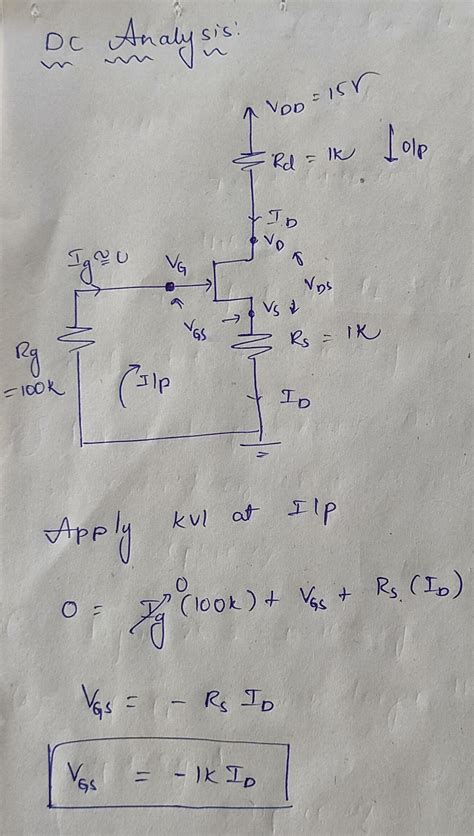 DC Analysis:
VDD = 15V
Rd = 1K ↓ O/p
ID
VD
Ig ≅ 0
VG
VDS
VS
VGS
Rs = 1K
Rg
= 100k
I/p
ID
Apply kvl at I/p
0 = Ig (100k) + VGS + Rs (ID)
0
VGS = - Rs ID
VGS = -1K ID